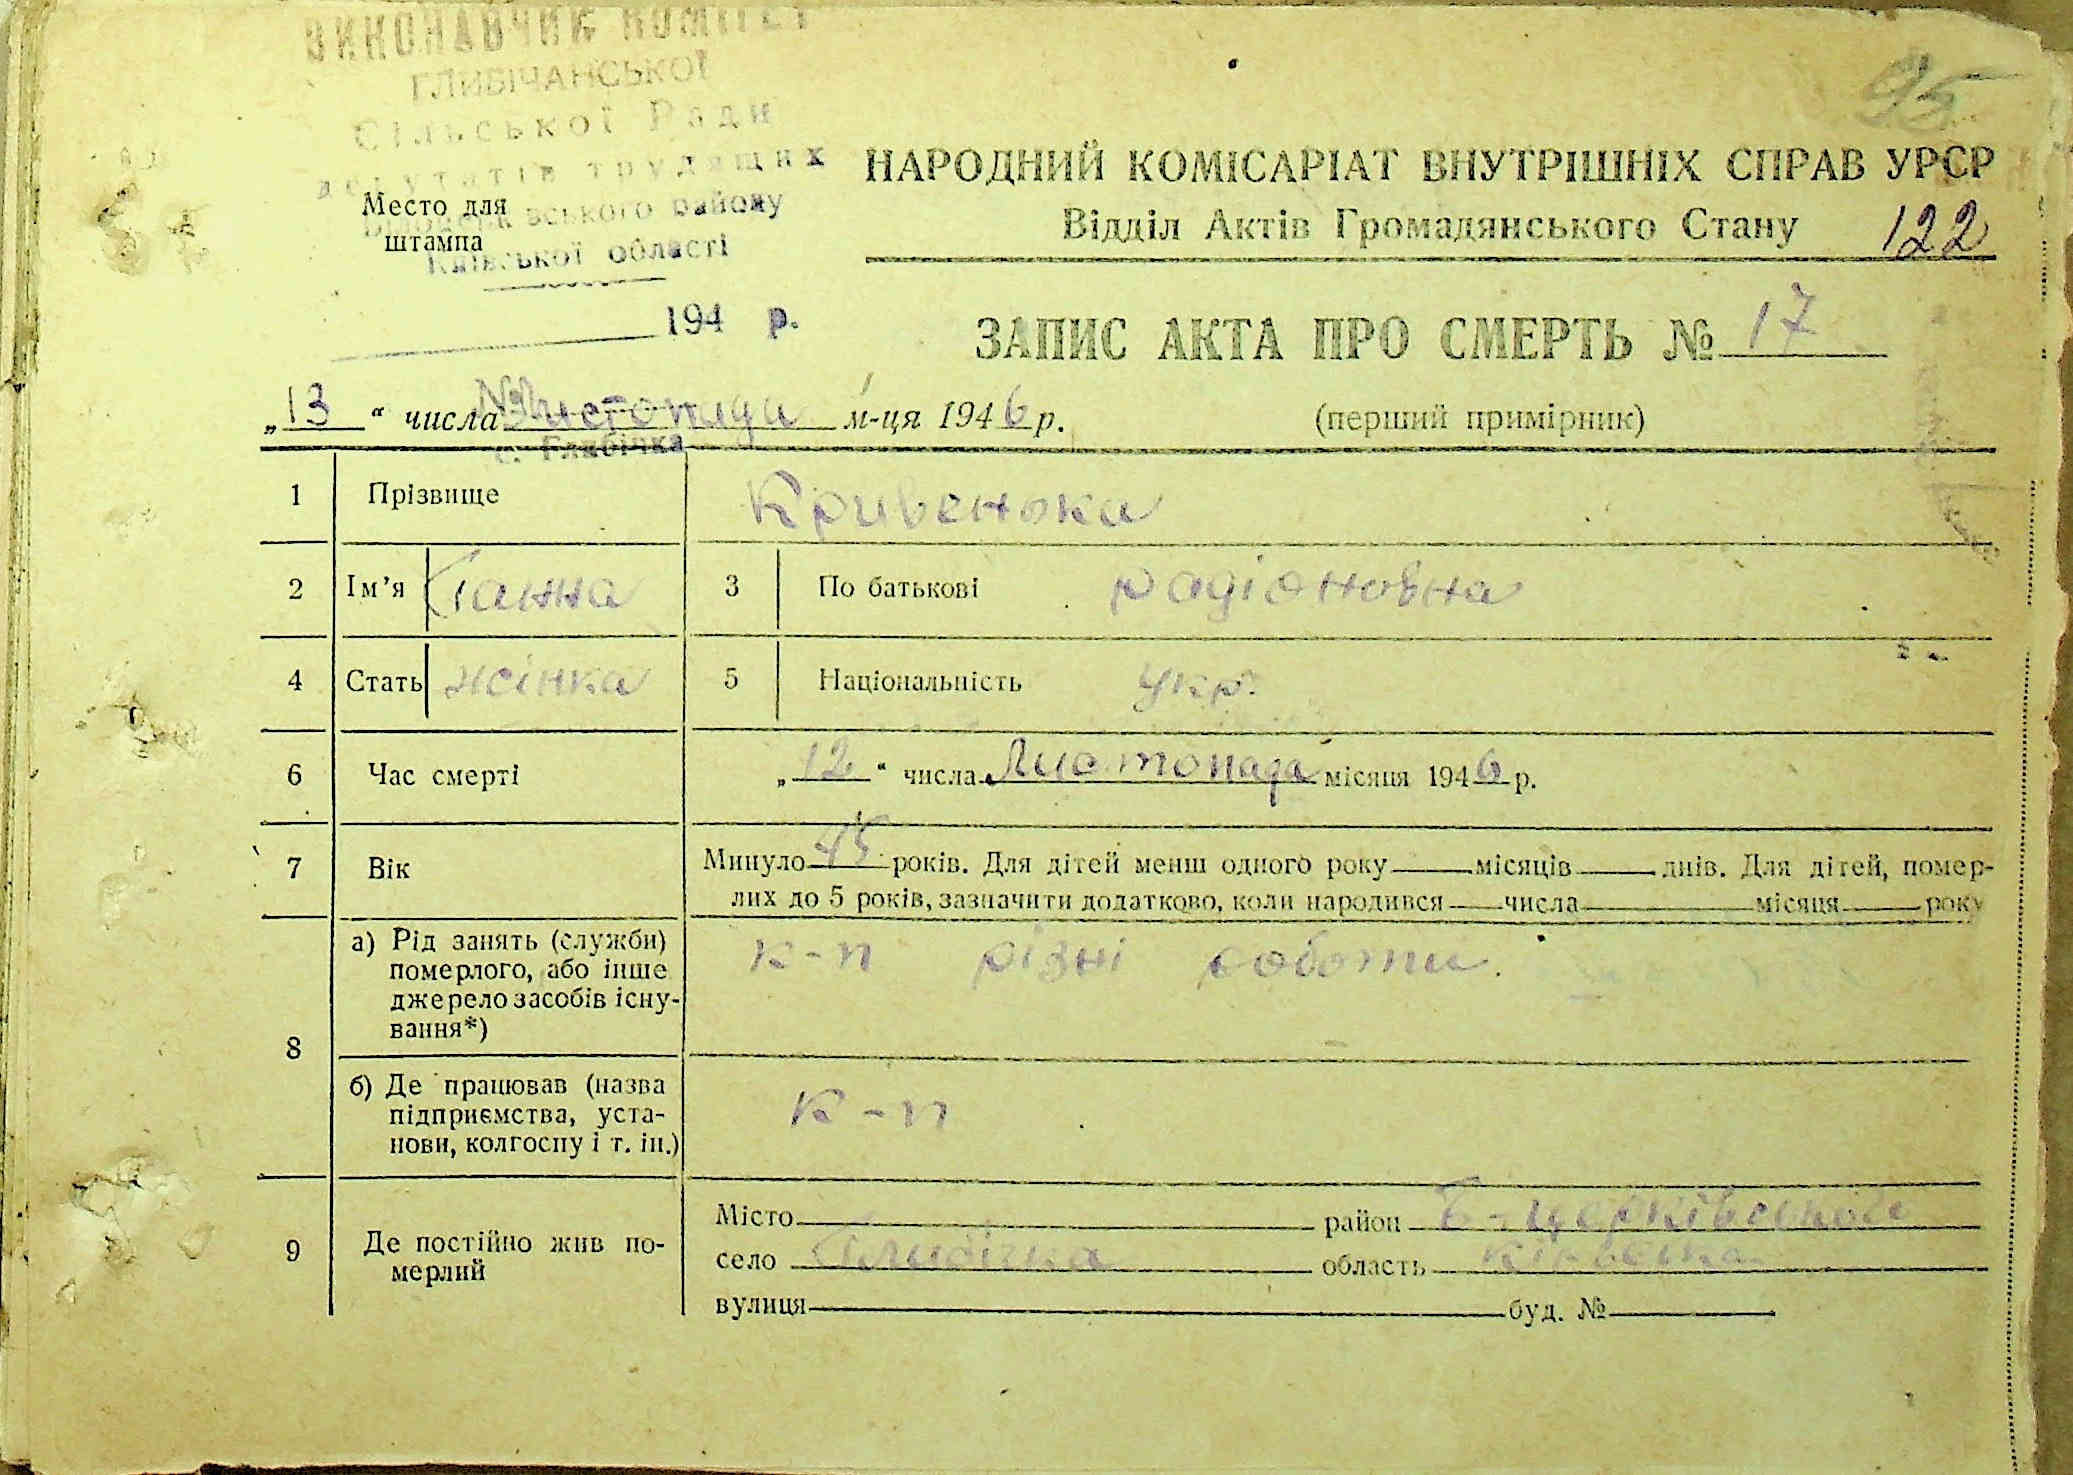 ВИКОНАВЧИЙ КОМІТЕТ
ГЛИБІЧАНСЬКОЇ
Сільської Ради
депутатів трудящих
району
Київської області
Место для
штампа
194 р.
95
НАРОДНИЙ КОМІСАРІАТ ВНУТРІШНІХ СПРАВ УРСР
Відділ Актів Громадянського Стану 122
ЗАПИС АКТА ПРО СМЕРТЬ № 17
„13" числа Листопада м-ця 1946 р. (перший примірник)
с. Глибічка
1 Прізвище Кривенока
2 Ім'я Ганна 3 По батькові радіоновна
4 Стать жінка 5 Національність укр.
6 Час смерті „12" числа Листопада місяця 1946 р.
7 Вік Минуло 45 років. Для дітей менш одного року місяців днів. Для дітей, помер-
лих до 5 років, зазначити додатково, коли народився числа місяця року
8 а) Рід занять (служби) к-п різні роботи.
померлого, або інше
джерело засобів існу-
вання*)
б) Де працював (назва к-п
підприємства, уста-
нови, колгоспу і т. ін.)
9 Де постійно жив по-
мерлий
Місто район Б-Церківський
село Глибічка область Київська
вулиця буд. №